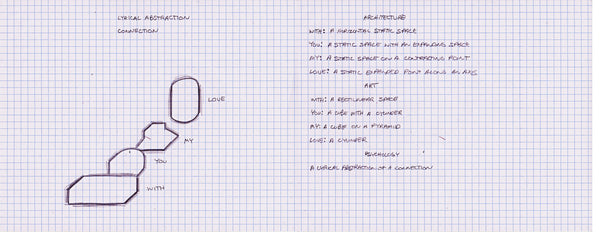 LYRICAL ABSTRACTION
CONNECTION
LOVE
MY
YOU
WITH
ARCHITECTURE
WITH: A HORIZONTAL STATIC SPACE
YOU: A STATIC SPACE WITH AN EXPANDING SPACE
MY: A STATIC SPACE ON A CONTRACTING POINT
LOVE: A STATIC EXPANDED POINT ALONG AN AXIS
ART
WITH: A RECTILINEAR SPACE
YOU: A CUBE WITH A CYLINDER
MY: A CUBE ON A PYRAMID
LOVE: A CYLINDER
PSYCHOLOGY
A LYRICAL ABSTRACTION OF A CONNECTION